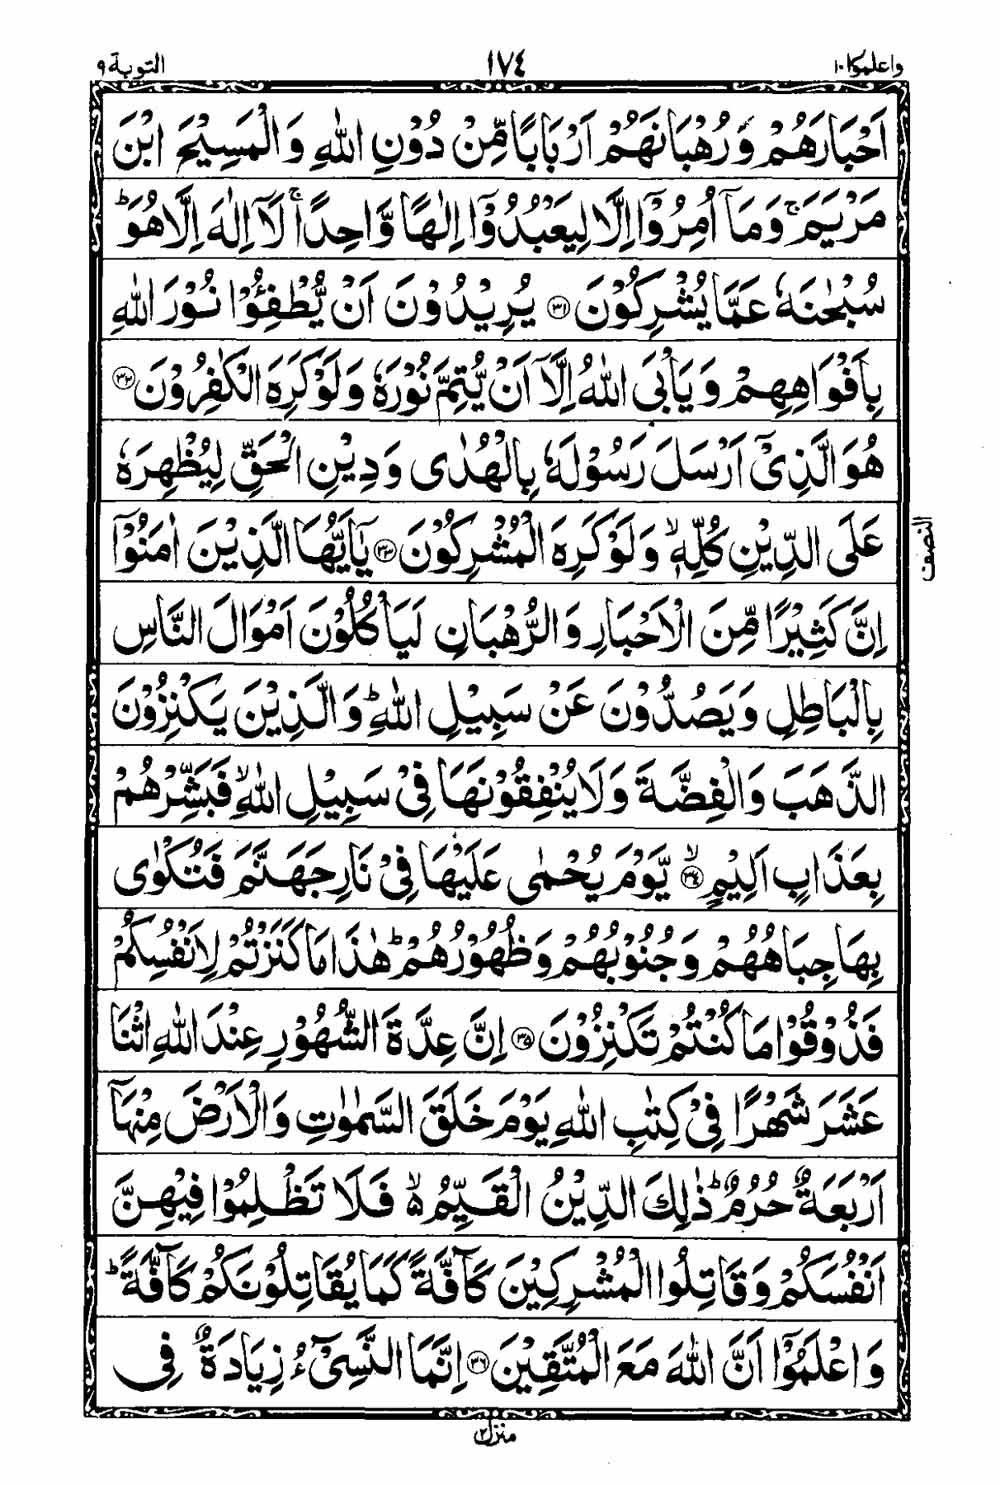 واعلموٓا١٠
١٧٤
التوبة ٩
اَحْبَارَهُمْ وَرُهْبَانَهُمْ اَرْبَابًا مِّنْ دُوْنِ اللّٰهِ وَالْمَسِيْحَ ابْنَ
مَرْيَمَ ۚ وَمَاۤ اُمِرُوْۤا اِلَّا لِيَعْبُدُوْۤا اِلٰهًا وَّاحِدًا ۚ لَاۤ اِلٰهَ اِلَّا هُوَ ؕ
سُبْحٰنَهٗ عَمَّا يُشْرِكُوْنَ ۝٣١ يُرِيْدُوْنَ اَنْ يُّطْفِـُٔوْا نُوْرَ اللّٰهِ
بِاَفْوَاهِهِمْ وَيَاْبَى اللّٰهُ اِلَّاۤ اَنْ يُّتِمَّ نُوْرَهٗ وَلَوْ كَرِهَ الْكٰفِرُوْنَ ۝٣٢
هُوَ الَّذِيْۤ اَرْسَلَ رَسُوْلَهٗ بِالْهُدٰى وَدِيْنِ الْحَقِّ لِيُظْهِرَهٗ
عَلَى الدِّيْنِ كُلِّهٖ ۙ وَلَوْ كَرِهَ الْمُشْرِكُوْنَ ۝٣٣ يٰۤاَيُّهَا الَّذِيْنَ اٰمَنُوْۤا
اِنَّ كَثِيْرًا مِّنَ الْاَحْبَارِ وَالرُّهْبَانِ لَيَاْكُلُوْنَ اَمْوَالَ النَّاسِ
بِالْبَاطِلِ وَيَصُدُّوْنَ عَنْ سَبِيْلِ اللّٰهِ ؕ وَالَّذِيْنَ يَكْنِزُوْنَ
الذَّهَبَ وَالْفِضَّةَ وَلَا يُنْفِقُوْنَهَا فِيْ سَبِيْلِ اللّٰهِ ۙ فَبَشِّرْهُمْ
بِعَذَابٍ اَلِيْمٍ ۙ۝٣٤ يَّوْمَ يُحْمٰى عَلَيْهَا فِيْ نَارِ جَهَنَّمَ فَتُكْوٰى
بِهَا جِبَاهُهُمْ وَجُنُوْبُهُمْ وَظُهُوْرُهُمْ ؕ هٰذَا مَا كَنَزْتُمْ لِاَنْفُسِكُمْ
فَذُوْقُوْا مَا كُنْتُمْ تَكْنِزُوْنَ ۝٣٥ اِنَّ عِدَّةَ الشُّهُوْرِ عِنْدَ اللّٰهِ اثْنَا
عَشَرَ شَهْرًا فِيْ كِتٰبِ اللّٰهِ يَوْمَ خَلَقَ السَّمٰوٰتِ وَالْاَرْضَ مِنْهَاۤ
اَرْبَعَةٌ حُرُمٌ ؕ ذٰلِكَ الدِّيْنُ الْقَيِّمُ ۙ۬ فَلَا تَظْلِمُوْا فِيْهِنَّ
اَنْفُسَكُمْ وَقَاتِلُوا الْمُشْرِكِيْنَ كَآفَّةً كَمَا يُقَاتِلُوْنَكُمْ كَآفَّةً ؕ
وَاعْلَمُوْۤا اَنَّ اللّٰهَ مَعَ الْمُتَّقِيْنَ ۝٣٦ اِنَّمَا النَّسِيْٓءُ زِيَادَةٌ فِي
النصف
منزل٢